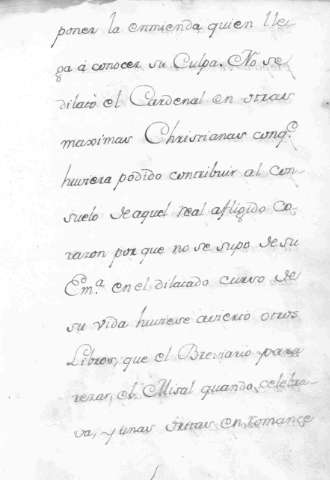 poner la enmienda quien lle-
ga á conocer su Culpa. No se
dilató el Cardenal en otras
maximas Christianas conq.e
huviera podido contribuir al con-
suelo de aquel real afligido Co-
razon por que no se supo de su
Em.a en el dilatado curso de
su vida huviese avierto otros
Libros, que el Breviario para
rezar, el Misal quando celebra-
va, y unas Oras en Romance